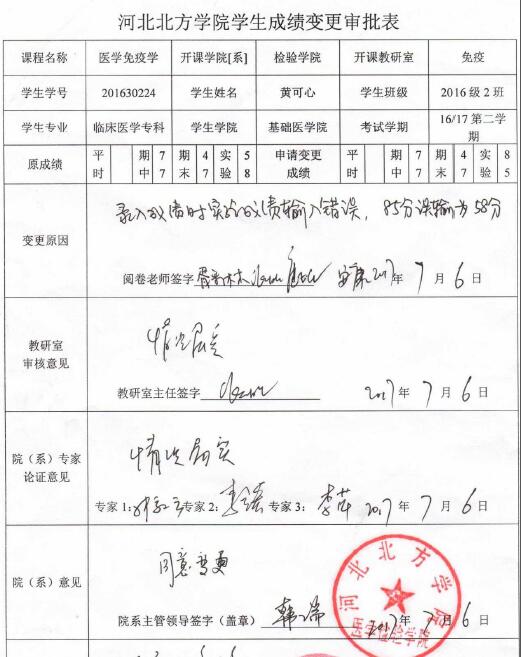 河北北方学院学生成绩变更审批表
课程名称 医学免疫学 开课学院[系] 检验学院 开课教研室 免疫
学生学号 201630224 学生姓名 黄可心 学生班级 2016级2班
学生专业 临床医学专科 学生学院 基础医学院 考试学期 16/17第二学期
原成绩 平时 期中 77 期末 47 实验 58 申请变更成绩 平时 期中 77 期末 47 实验 85
变更原因
录入成绩时实验成绩输入错误，85分误输为58分
阅卷老师签字 2017年7月6日
教研室审核意见
情况属实
教研室主任签字 2017年7月6日
院（系）专家论证意见
情况属实
专家1: 专家2: 专家3: 李萍 2017年7月6日
院（系）意见
同意变更
院系主管领导签字（盖章） 韩瑞 2017年7月6日
河北北方学院
医学检验学院